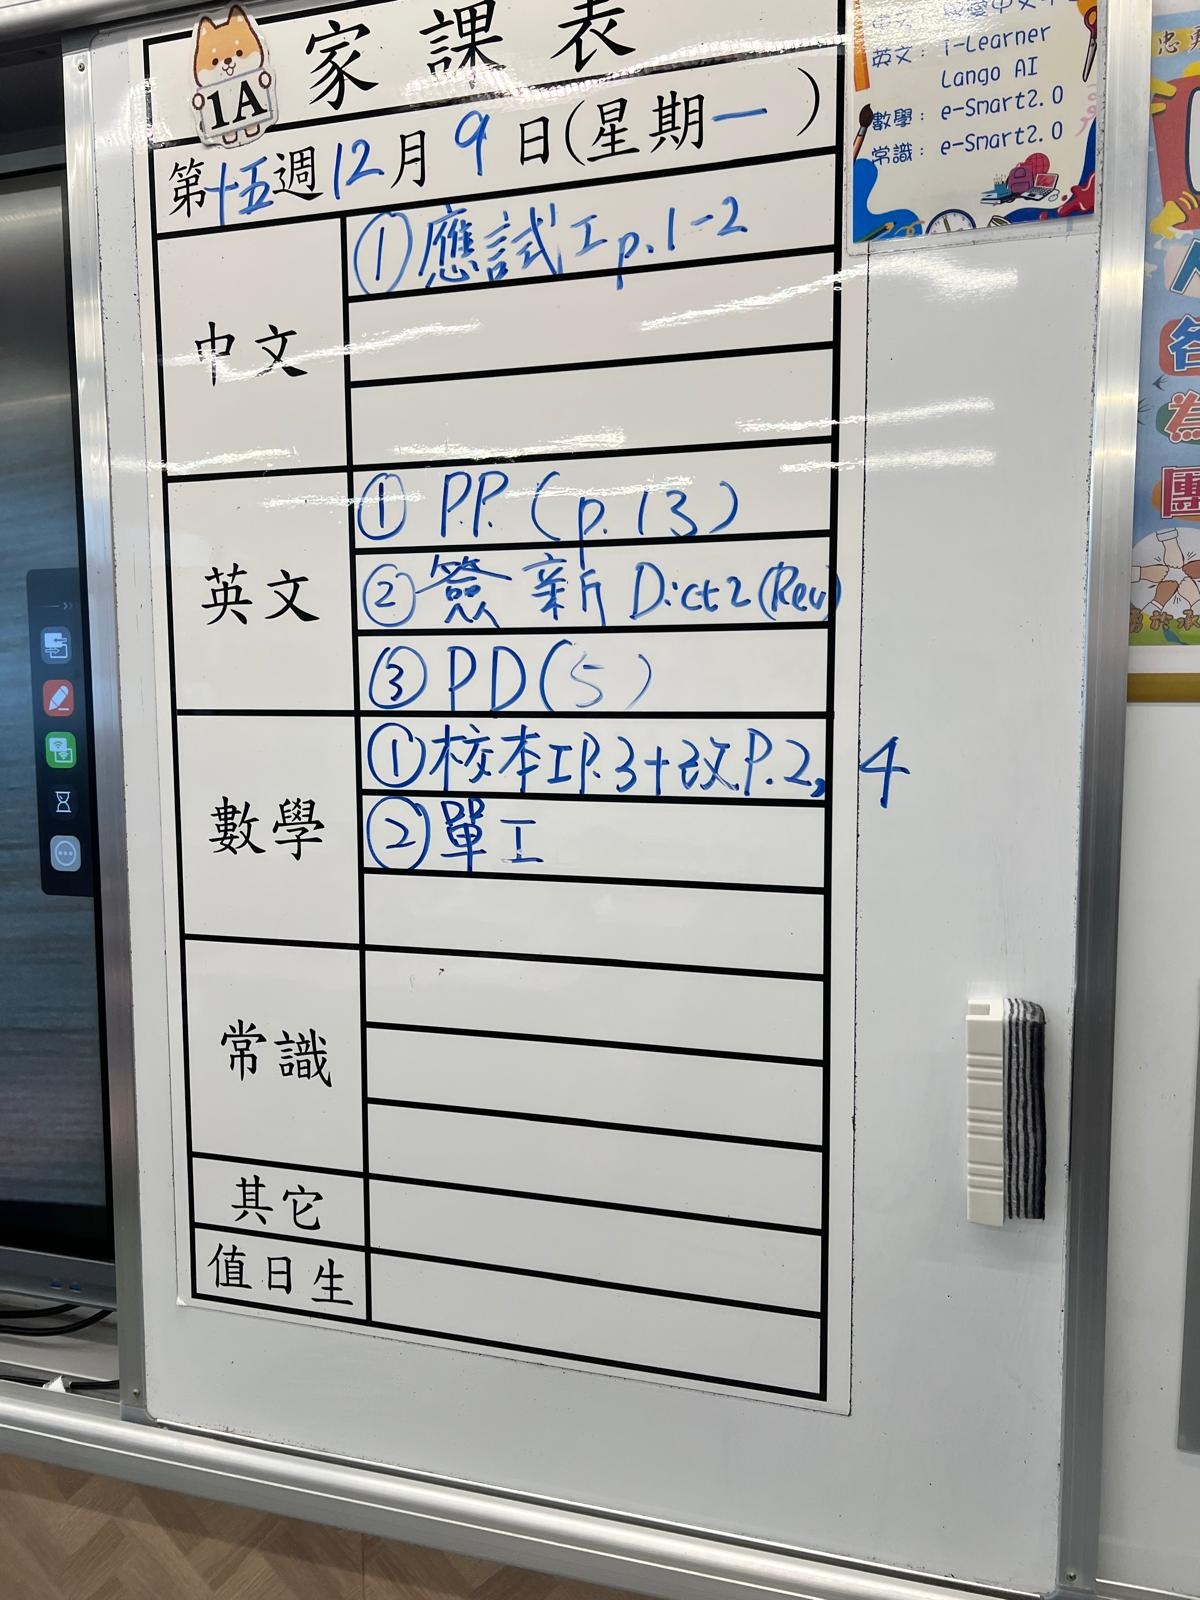 家課表
1A
第十五週12月9日(星期一)
中文
①應試工p.1-2
英文
① P.P. (p.13)
②簽 新 Dict 2 (Rev)
③ PD(5)
數學
①校本工P.3+改P.2, 4
②單工
常識
其它
值日生
英文: i-Learner
Lango AI
數學: e-Smart2.0
常識: e-Smart2.0
各
為
團